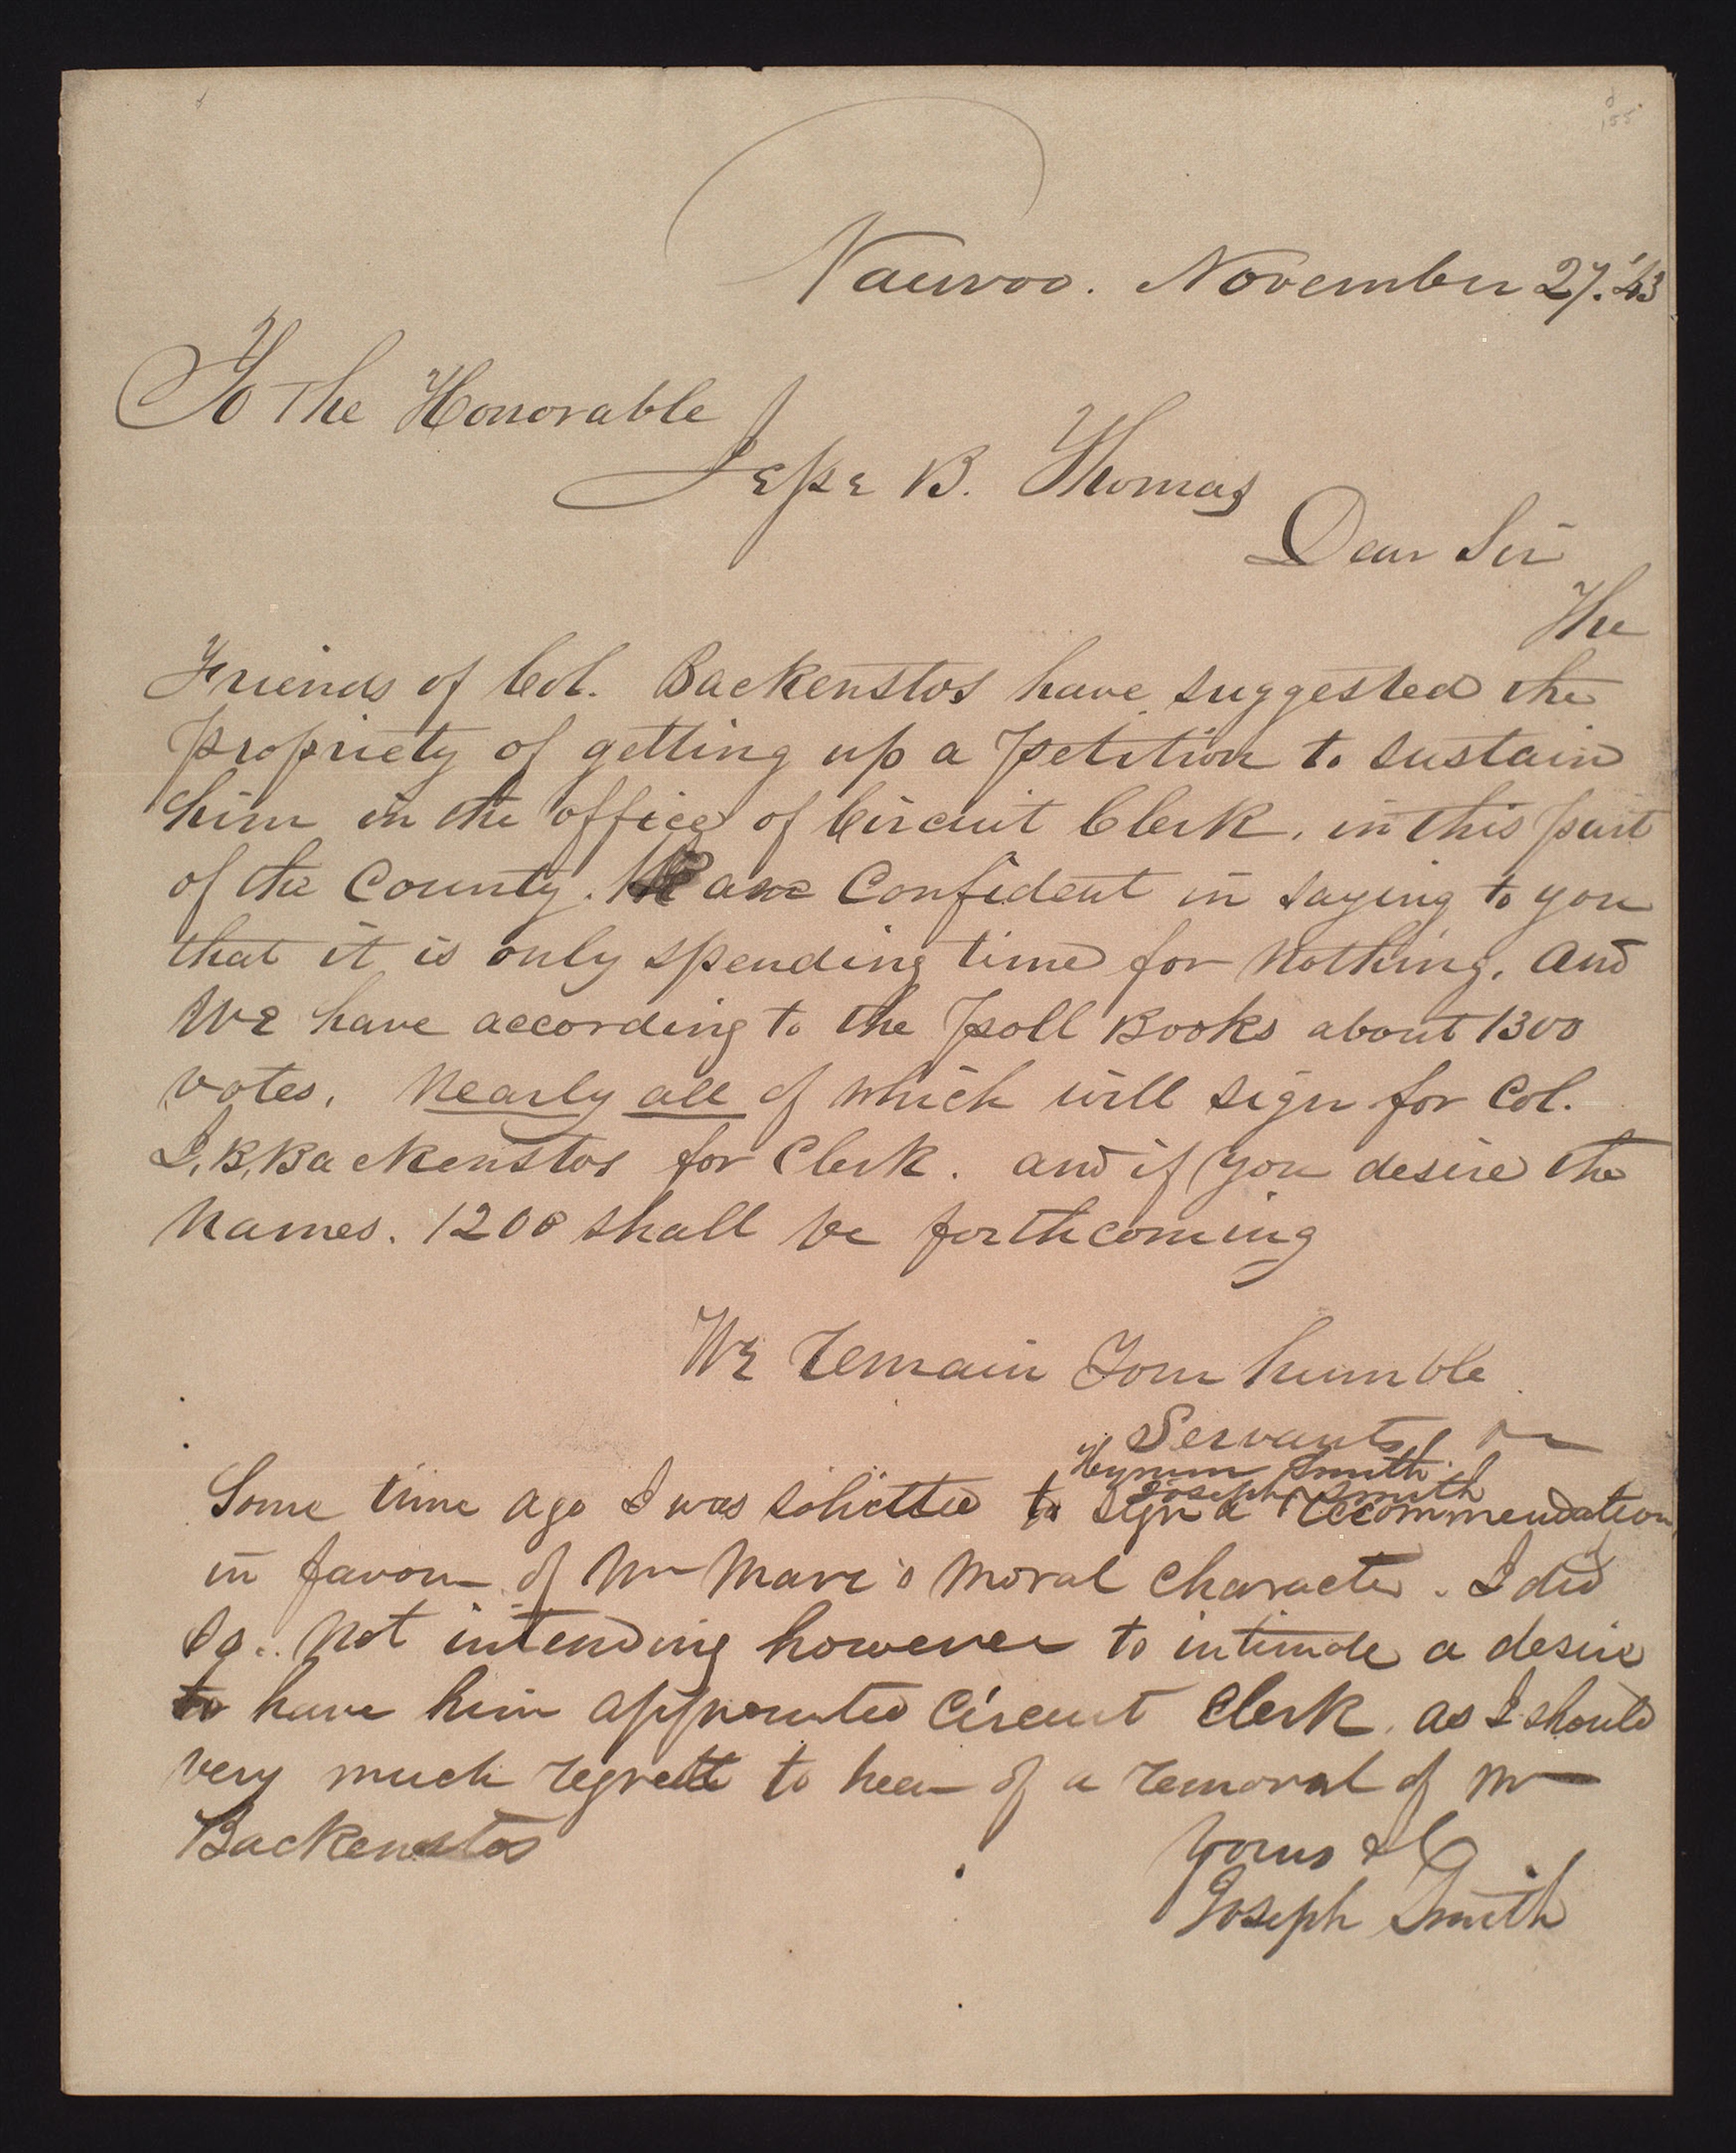 Nauvoo. November 27. '43
To the Honorable
Jesse B. Thomas
Dear Sir
The
Friends of Col. Backenstos have suggested the
propriety of getting up a petition to sustain
him in the office of Circuit Clerk, in this part
of the County. We are Confident in saying to you
that it is only spending time for nothing. and
We have according to the Poll Books about 1300
votes. Nearly all of which will sign for Col.
J. B. Backenstos for Clerk. and if you desire the
Names. 1200 shall be forthcoming
We remain Your humble
Servants
Hyrum Smith
Joseph Smith
Some time ago I was solicitted to sign a reccommendation
in favour of Mr Marr's moral character. I did
so.. not intending however to intimate a desire
to have him appointed Circuit Clerk. as I should
very much regrett to hear of a removal of Mr
Backenstos
yours &C
Joseph Smith